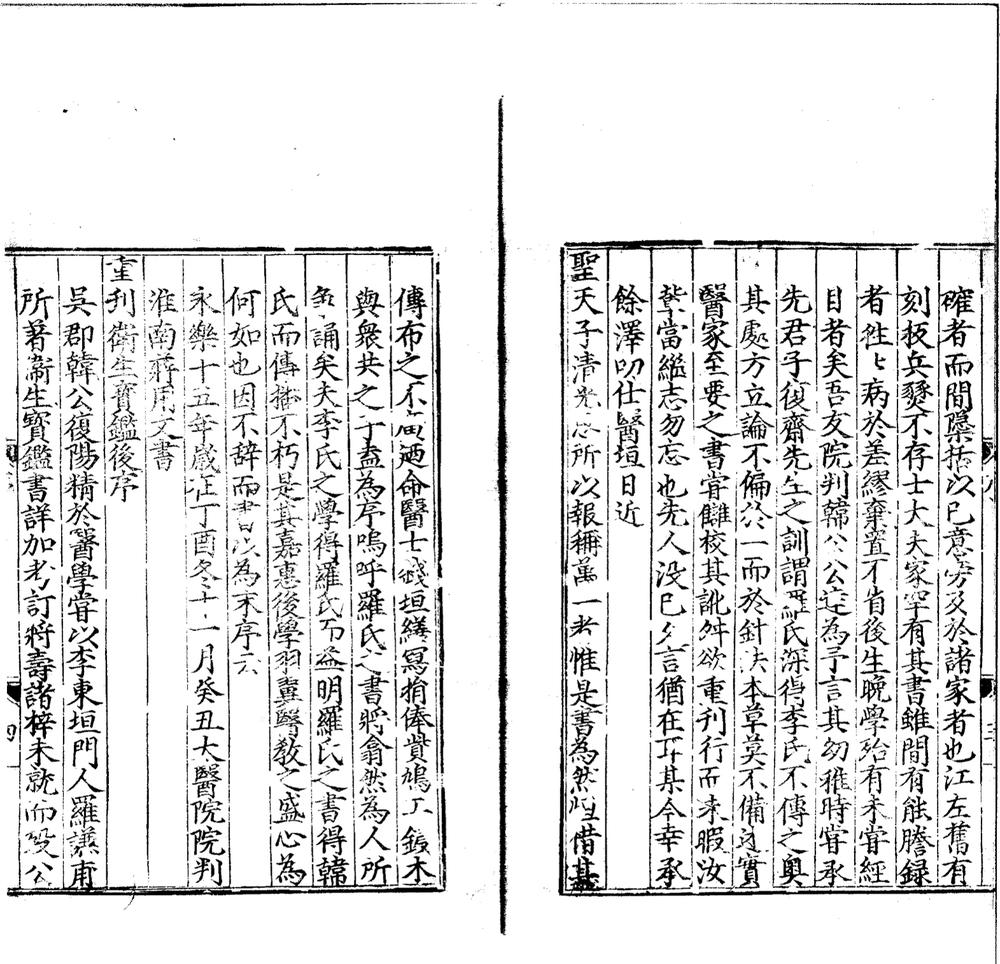 確者而間櫽括以已意旁及於諸家者也江左舊有
刻板兵燹不存士大夫家罕有其書雖間有能謄録
者徃〻病於差繆棄置不省後生晚學殆有未嘗經
目者矣吾友院判韓公公達為予言其幼稚時嘗承
先君子復齋先生之訓謂羅氏深得李氏不傳之奥
其處方立論不偏於一而於針法本草莫不備述實
醫家至要之書嘗讎校其訛舛欲重刊行而未暇汝
軰當繼志勿忘也先人没已久言猶在耳某今幸承
餘澤叨仕醫垣日近
聖天子清光思所以報稱萬一者惟是書為然惜其
傳布之不廣廼命醫士錢垣繕寫捐俸貲鳩工鋟木
與衆共之予盍為序嗚呼羅氏之書將翕然為人所
争誦矣夫李氏之學得羅氏而益明羅氏之書得韓
氏而傳播不朽是其嘉惠後學羽翼醫教之盛心為
何如也因不辞而書以為末序云
永樂十五年歲在丁酉冬十一月癸丑太醫院院判
淮南蔣用文書
重刋衛生寳鑑後序
吳郡韓公復陽精於醫學嘗以李東垣門人羅謙甫
所著衛生寳鑑書詳加考訂將壽諸梓未就而殁公
四